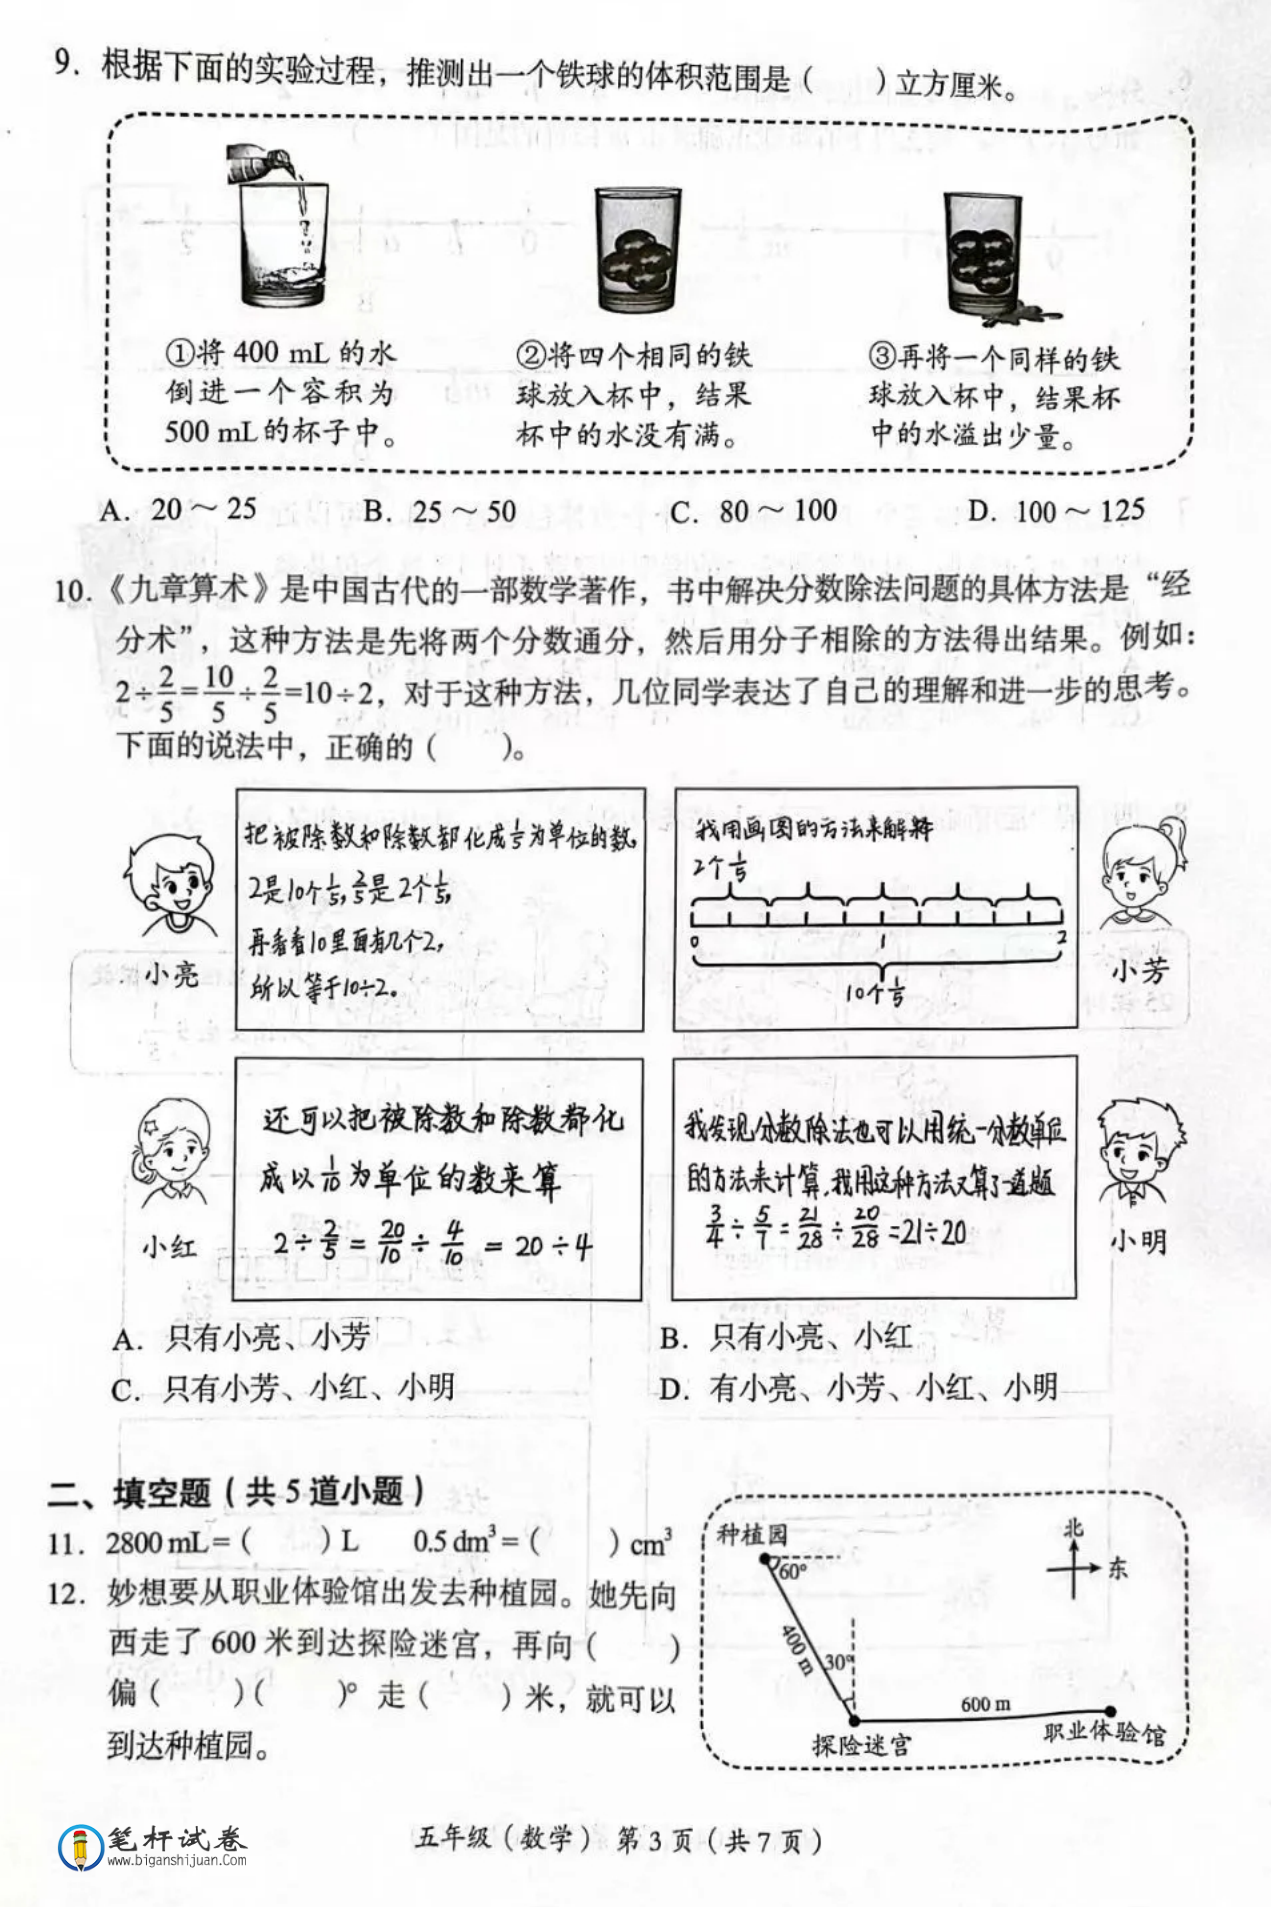 9. 根据下面的实验过程，推测出一个铁球的体积范围是（　　）立方厘米。
①将 400 mL 的水
倒进一个容积为
500 mL的杯子中。
②将四个相同的铁
球放入杯中，结果
杯中的水没有满。
③再将一个同样的铁
球放入杯中，结果杯
中的水溢出少量。
A. 20～25　　B. 25～50　　C. 80～100　　D. 100～125
10.《九章算术》是中国古代的一部数学著作，书中解决分数除法问题的具体方法是“经
分术”，这种方法是先将两个分数通分，然后用分子相除的方法得出结果。例如：
2÷2/5=10/5÷2/5=10÷2，对于这种方法，几位同学表达了自己的理解和进一步的思考。
下面的说法中，正确的（　　）。
把被除数和除数都化成1/5为单位的数，
2是10个1/5，2/5是2个1/5，
再看看10里面有几个2，
所以等于10÷2。
小亮
我用画图的方法来解释
2个1/5
0　1　2
10个1/5
小芳
还可以把被除数和除数都化
成以1/10为单位的数来算
2÷2/5=20/10÷4/10=20÷4
小红
我发现分数除法也可以用统一分数单位
的方法来计算，我用这种方法又算了一道题
3/4÷5/7=21/28÷20/28=21÷20
小明
A. 只有小亮、小芳　　B. 只有小亮、小红
C. 只有小芳、小红、小明　　D. 有小亮、小芳、小红、小明
二、填空题（共 5 道小题）
11. 2800 mL =（　　）L　　0.5 dm³ =（　　）cm³
12. 妙想要从职业体验馆出发去种植园。她先向
西走了 600 米到达探险迷宫，再向（　　）
偏（　　）（　　）° 走（　　）米，就可以
到达种植园。
种植园
60°
北
东
400 m
30°
600 m
探险迷宫
职业体验馆
笔杆试卷
www.biganshijuan.com
五年级（数学）第 3 页（共 7 页）